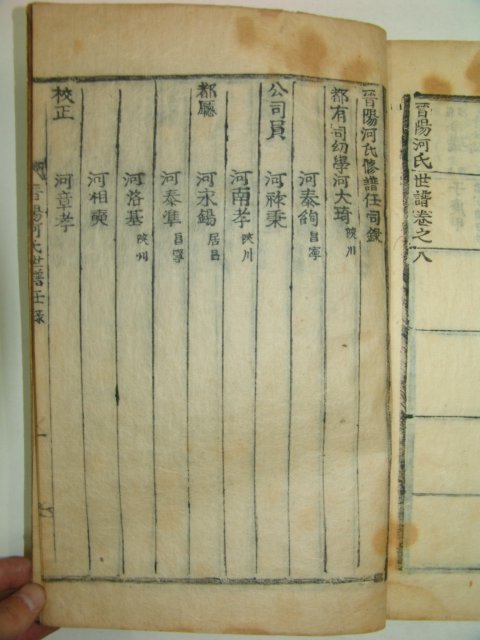 晋陽河氏世譜卷之八
晋陽河氏修譜任司錄
都有司幼學河大琦 陜川
河泰絢 昌寧
公司員 河祿秉
河南孝 陜川
都廳 河永錫 居昌
河泰準 昌寧
河洛基 陜州
河相奭
校正 河章孝
晋陽河氏世譜任錄